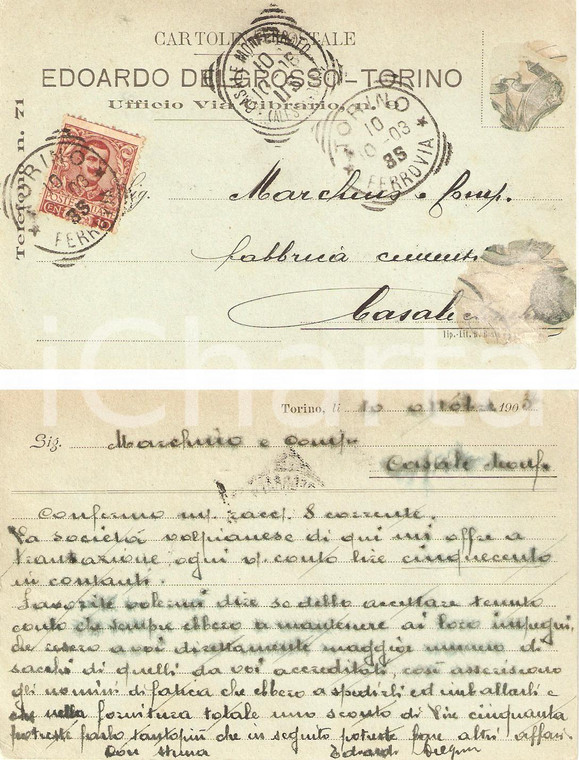 CARTOLINA POSTALE
EDOARDO DELGROSSO-TORINO
Ufficio Via Cibrario, n. 9
Telefono n. 71
CASALE MONFERRATO
TORINO
10
10-03
8S
FERROVIA
TORINO
10
8S
FERROVIA
POSTE ITALIANE
CENT. 10
Sig.
Marchino e Comp.
fabbrica cementi
Casale
Tip.-Lit.
iCharta
Torino, li 10 ottobre 1903
Sig. Marchino e Comp.
Casale Monf.
Confermo m/ racc. 8 corrente.
La società volpianese di qui mi offre a
transazione ogni v/ conto lire cinquecento
in contanti.
Favorite volermi dire se debbo accettare tenuto
conto che sempre ebbero a mantenere ai loro impegni,
che resero a voi direttamente maggior numero di
sacchi di quelli da voi accreditati, così asseriscono
gli uomini di fatica che ebbero a spedirli ed imballarli e
che nella fornitura totale uno sconto di lire cinquanta
potreste farlo tantopiù che in seguito potreste fare altri affari
Con stima
Edoardo Delgrosso